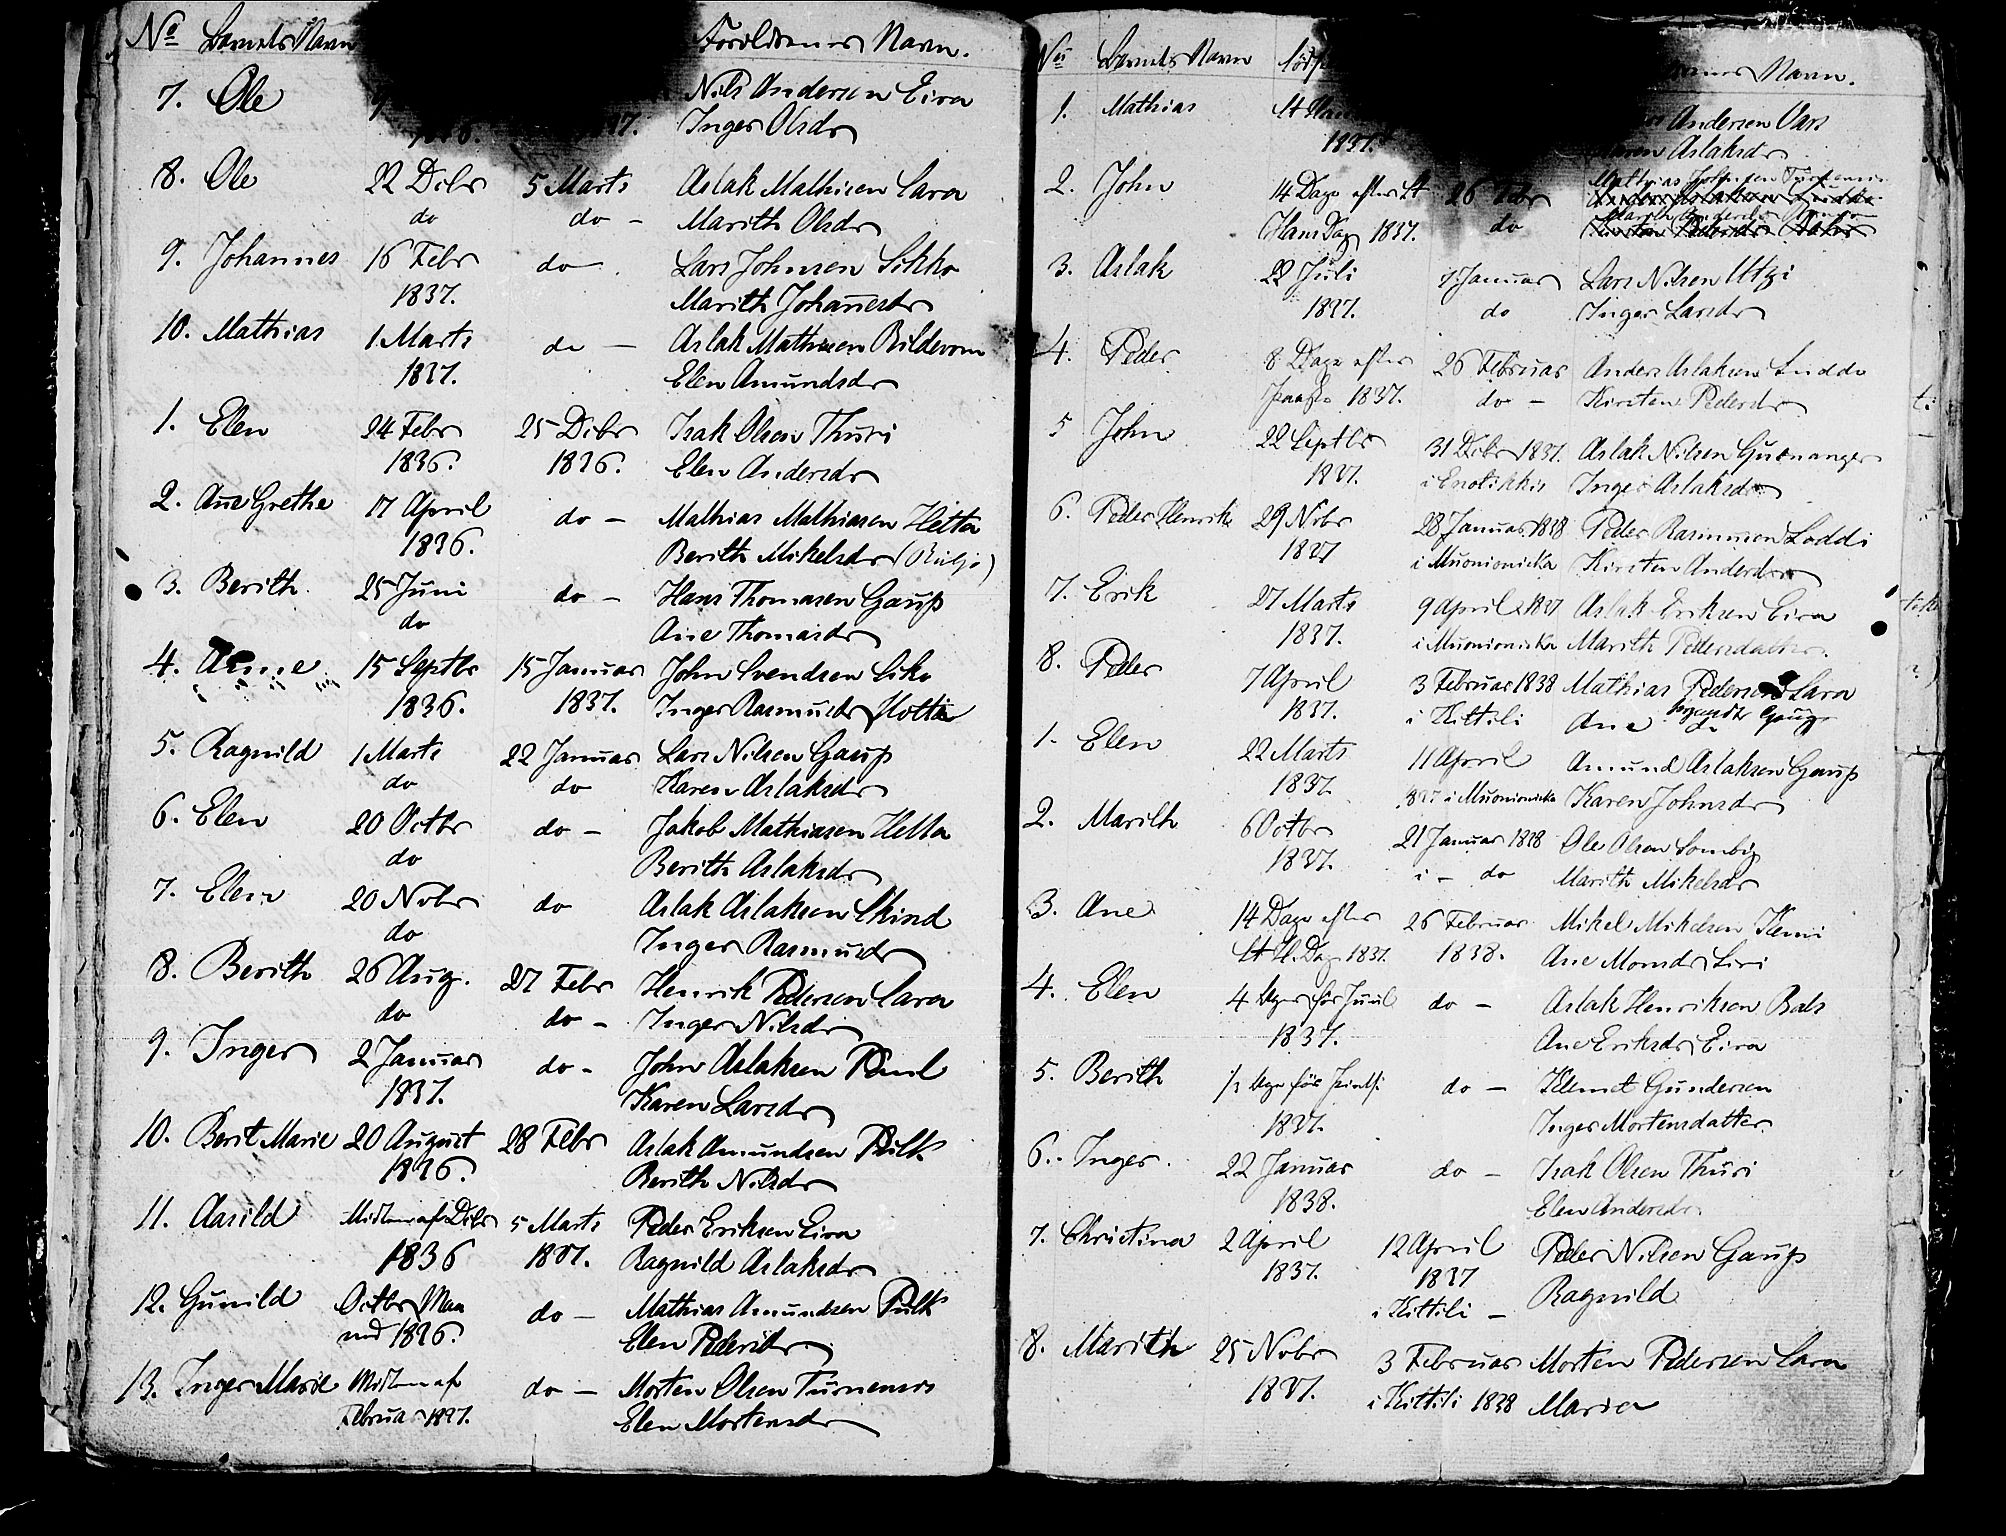 No Barnets Navn Forældrenes Navn.
7. Ole Nils Andersen Eira
Inger Olsdr
8. Ole 22 Decbr 5 Marts Aslak Mathisen Sara
do do - Marith Olsdr
9. Johannes 16 Febr do Lars Johnsen Sikko
1837. Marith Johannesdr
10. Mathias 1 Marts do - Aslak Mathisen
1837. Elen Amundsdr
1. Elen 24 Febr 25 Decbr Isak Olsen Thuri
1836. 1836. Elen Andersdr
2. Ane Grethe 17 April do - Mathias Mathiasen Hetta
1836. Berith Mikelsdr
3. Berith 25 Juni do - Hans Thomasen Gaup
do Ane Thomasdr
4. Anne 15 Septbr 15 Januar John Svendsen Siko
1836. 1837. Inger Rasmusdr Hotta
5. Ragnild 1 Marts 22 Januar Lars Nilsen Gaup
do do Karen Aslaksdr
6. Elen 20 Octbr do - Jakob Mathiasen Hetta
do Berith Aslaksdr
7. Elen 20 Novbr do Aslak Aslaksen Skind
do Inger Rasmusdr
8. Berith 26 Aug. 27 Febr Henrik Pedersen Sara
do do - Inger Nilsdr
9. Inger 2 Januar do - John Aslaksen
1837. Karen Larsdr
10. Berit Marie 20 August 28 Febr Aslak Amundsen Pulk
1836. Berith Nilsdr
11. Aasild Midten af Decbr 5 Marts Peder Eriksen Eira
1836 1837. Ragnild Aslaksdr
12. Gunild Octbr Maa do - Mathias Amundsen Pulk
ned 1836. Elen Pedersdr
13. Inger Marie Midten af do - Morten Olsen Turnensis
Februar 1837. Elen Mortensdr
No Barnets Navn Navn.
1. Mathias St Hans Andersen Vars
1837. Karen Aslaksdr
2. John 14 Dage efter St 26 Febr Mathias Johnsen Turnensis
Hans Dag 1837. do
3. Aslak 22 Juli 7 Januar Lars Nilsen Utzi
1837. do Inger Larsdr
4. Peder 8 Dage efter 26 Februar Anders Aslaksen Luddo
Paaske 1837. do - Kirsten Pedersdr
5 John 22 Septbr 31 Decbr 1837. Aslak Nilsen
1837. i Enotikkis Inger Aslaksdr
6. Peder Henrik 29 Novbr 28 Januar 1838 Peder Rasmusen Loddi
1837 i Muonionicka Kirsten Andersdr
7. Erik 27 Marts 9 April 1837 Aslak Eriksen Eira
1837. i Muonioniska Marith Pedersdatter.
8. Peder 7 April 3 Februar 1838 Mathias Pedersen Sara
1837. i Kittili Ane Gaup
1. Elen 22 Marts 11 April Amund Aslaksen Gaup
1837. 1837 i Muonionicka Karen Johnsdr
2. Marith 6 Octbr 21 Januar 1838 Ole Olsen Somby
1837. i - do Marith Mikelsdr
3. Ane 14 Dage efter 26 Februar Mikel Mikelsen Kemi
St H. Dag 1837. 1838. Ane Monsdr Siri
4. Elen 4 Uger før Juul do - Aslak Henriksen Bals
1837. Ane Eriksdr Eira
5. Berith do - Klemet Gundersen
1837. Inger Mortensdatter
6. Inger. 22 Januar do - Isak Olsen Thuri
1838. Elen Andersdr.
7. Christina 2 April 12 April Peder Nilsen Gaup
1837. 1837 Ragnild
i Kittili -
8. Marith 25 Novbr 3 Februar Morten Pedersen Sara
1837. i Kittili 1838 Maria